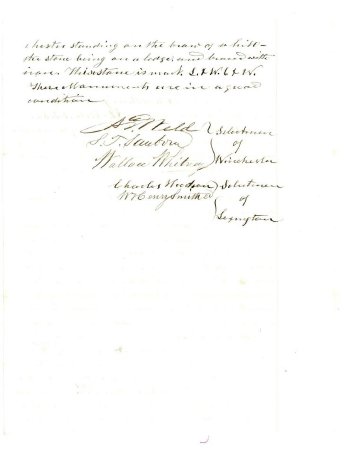 chester standing on the brow of a hill –
the stone being on a ledge and braced with
irons This stone is mark L & W. 
These Monuments are in a good
condition
A. G. Weld
S. T. Sanborn
Wallace Whitney
Selectmen
of
Winchester
Charles
W Henry Smith
Selectmen
of
Lexington